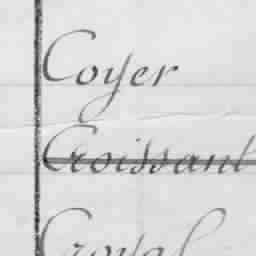 Coyer
Croissant